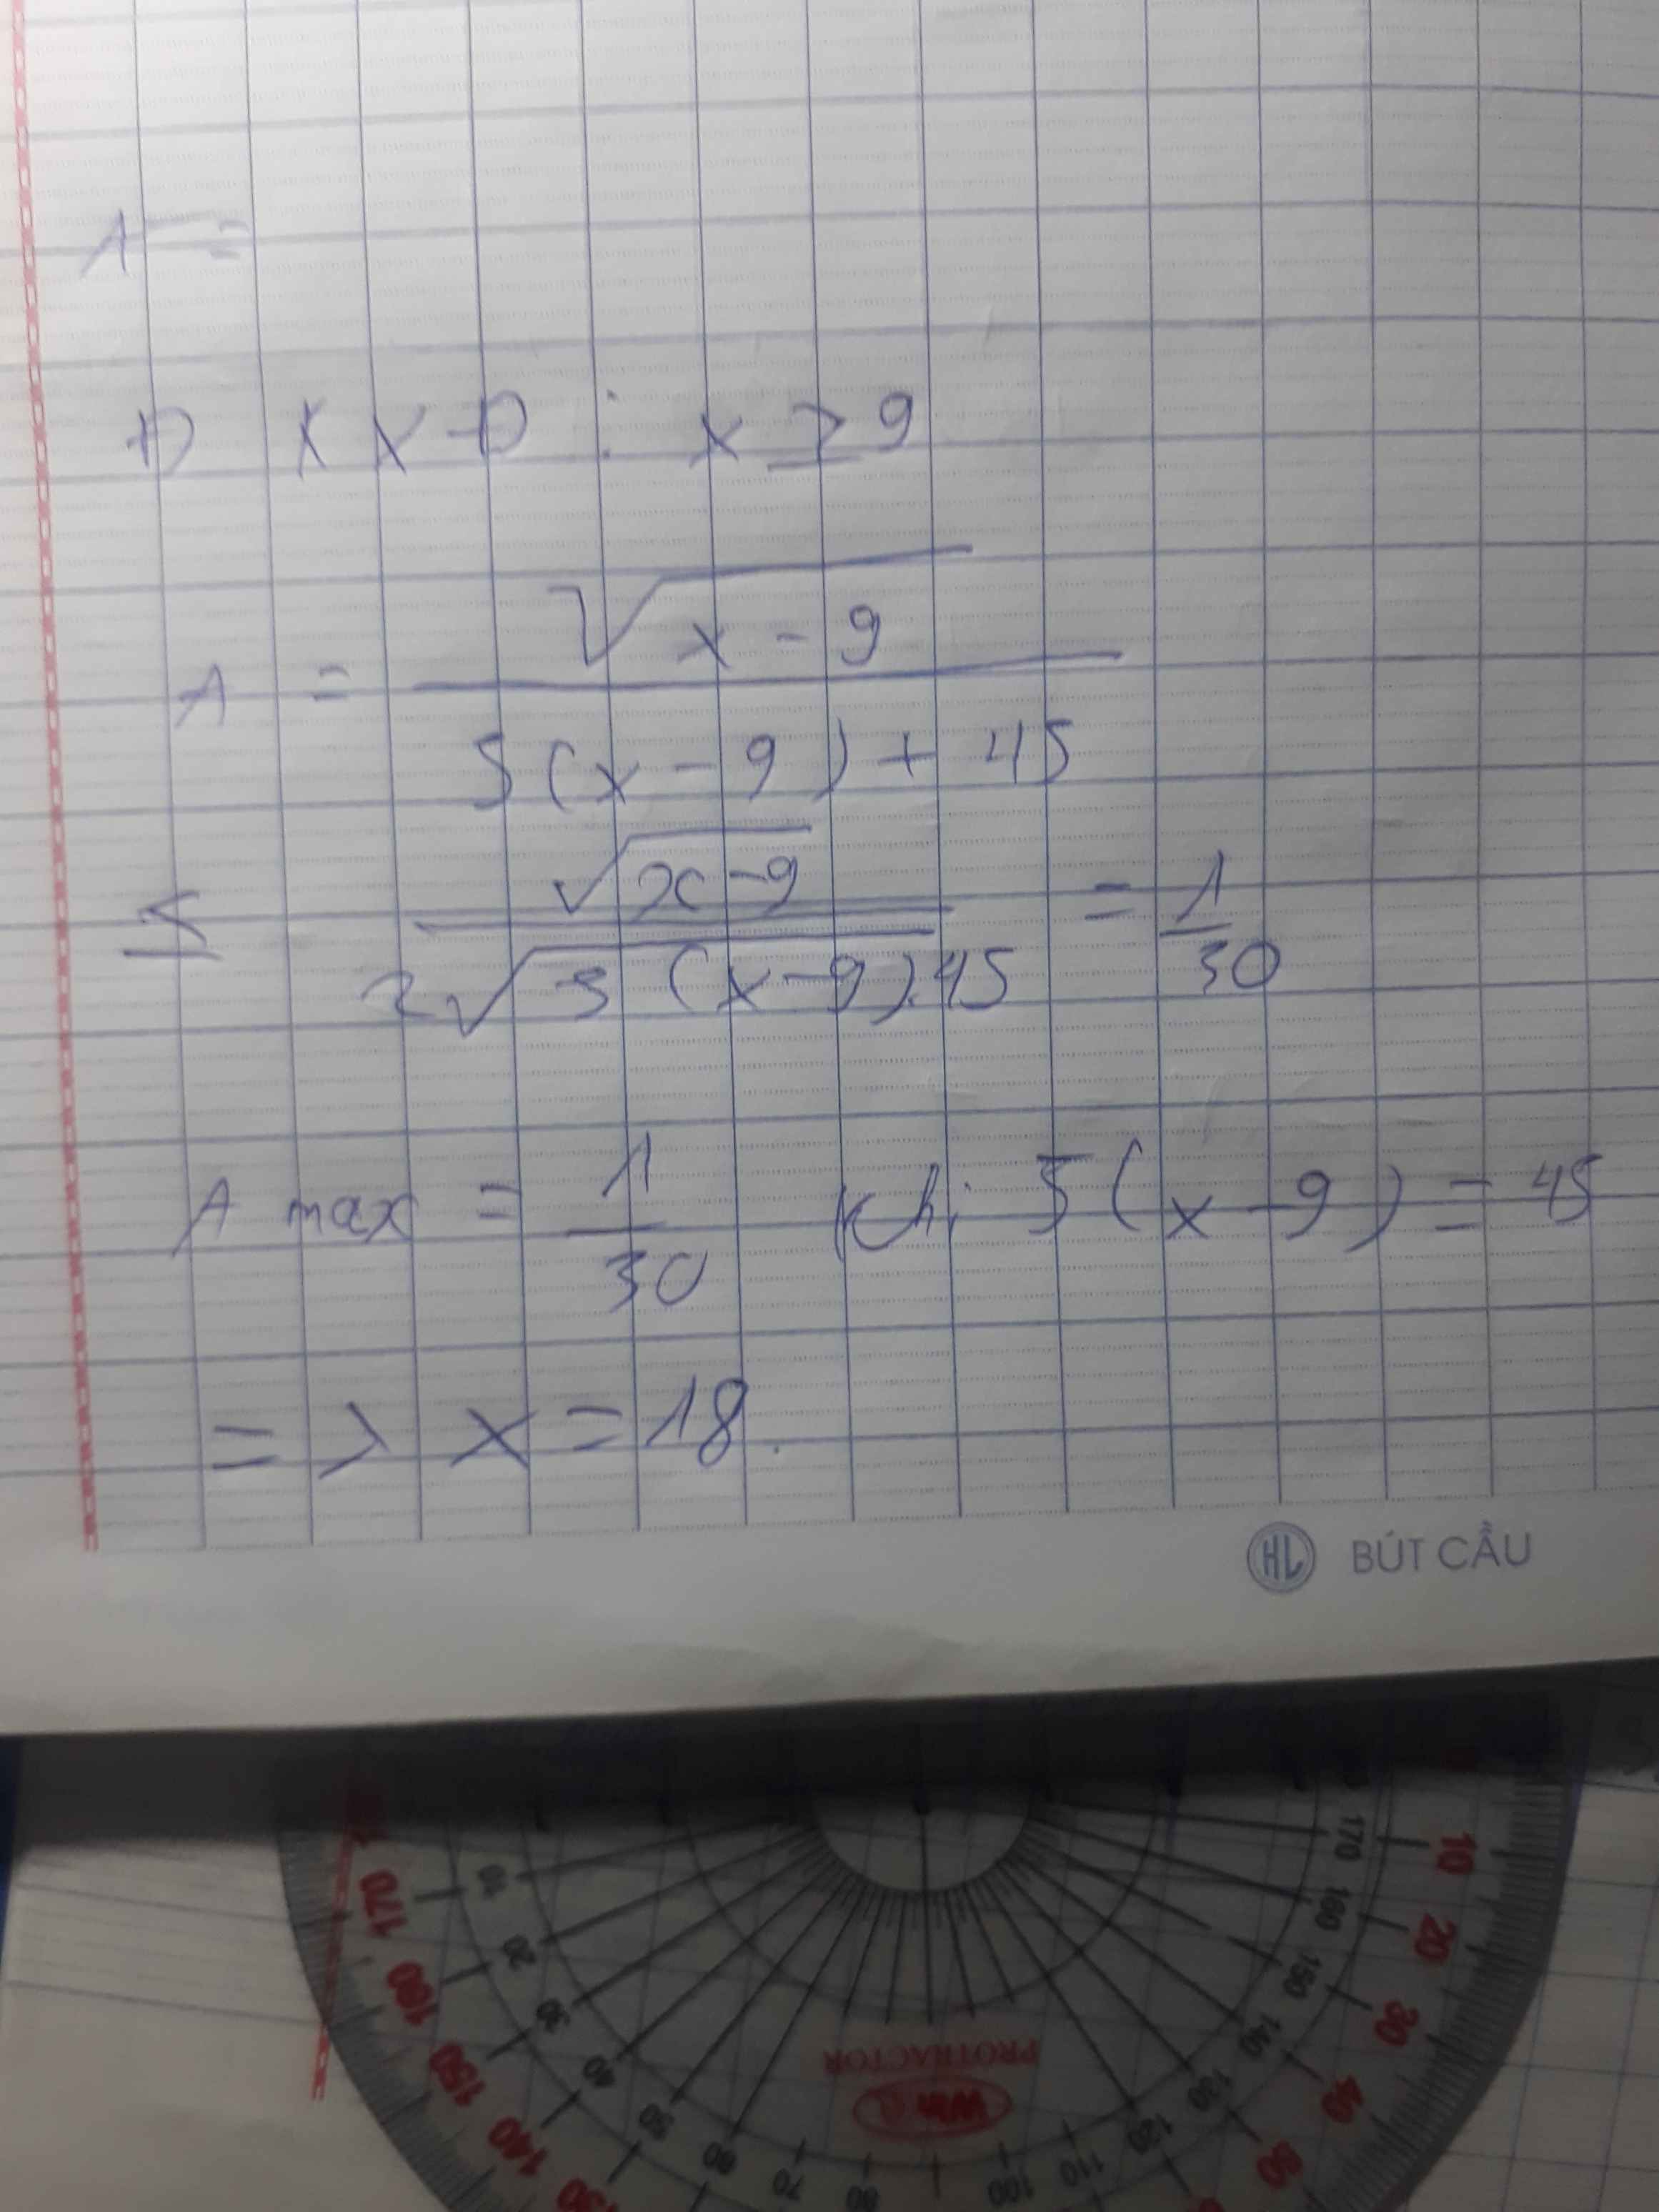 A =
ĐKXĐ : x ≥ 9
A = √(x - 9) / (5(x - 9) + 45)
≤ √(x-9) / (2√(5(x-9).45)) = 1/30
A max = 1/30 khi 5(x-9) = 45
=> x = 18.
HL BÚT CẦU
170 10
170 10
160 20
160 20
150 30
150 30
140 40
140 40
130 50
130 50
120 60
110 70
100 80
PROTRACTOR
Win